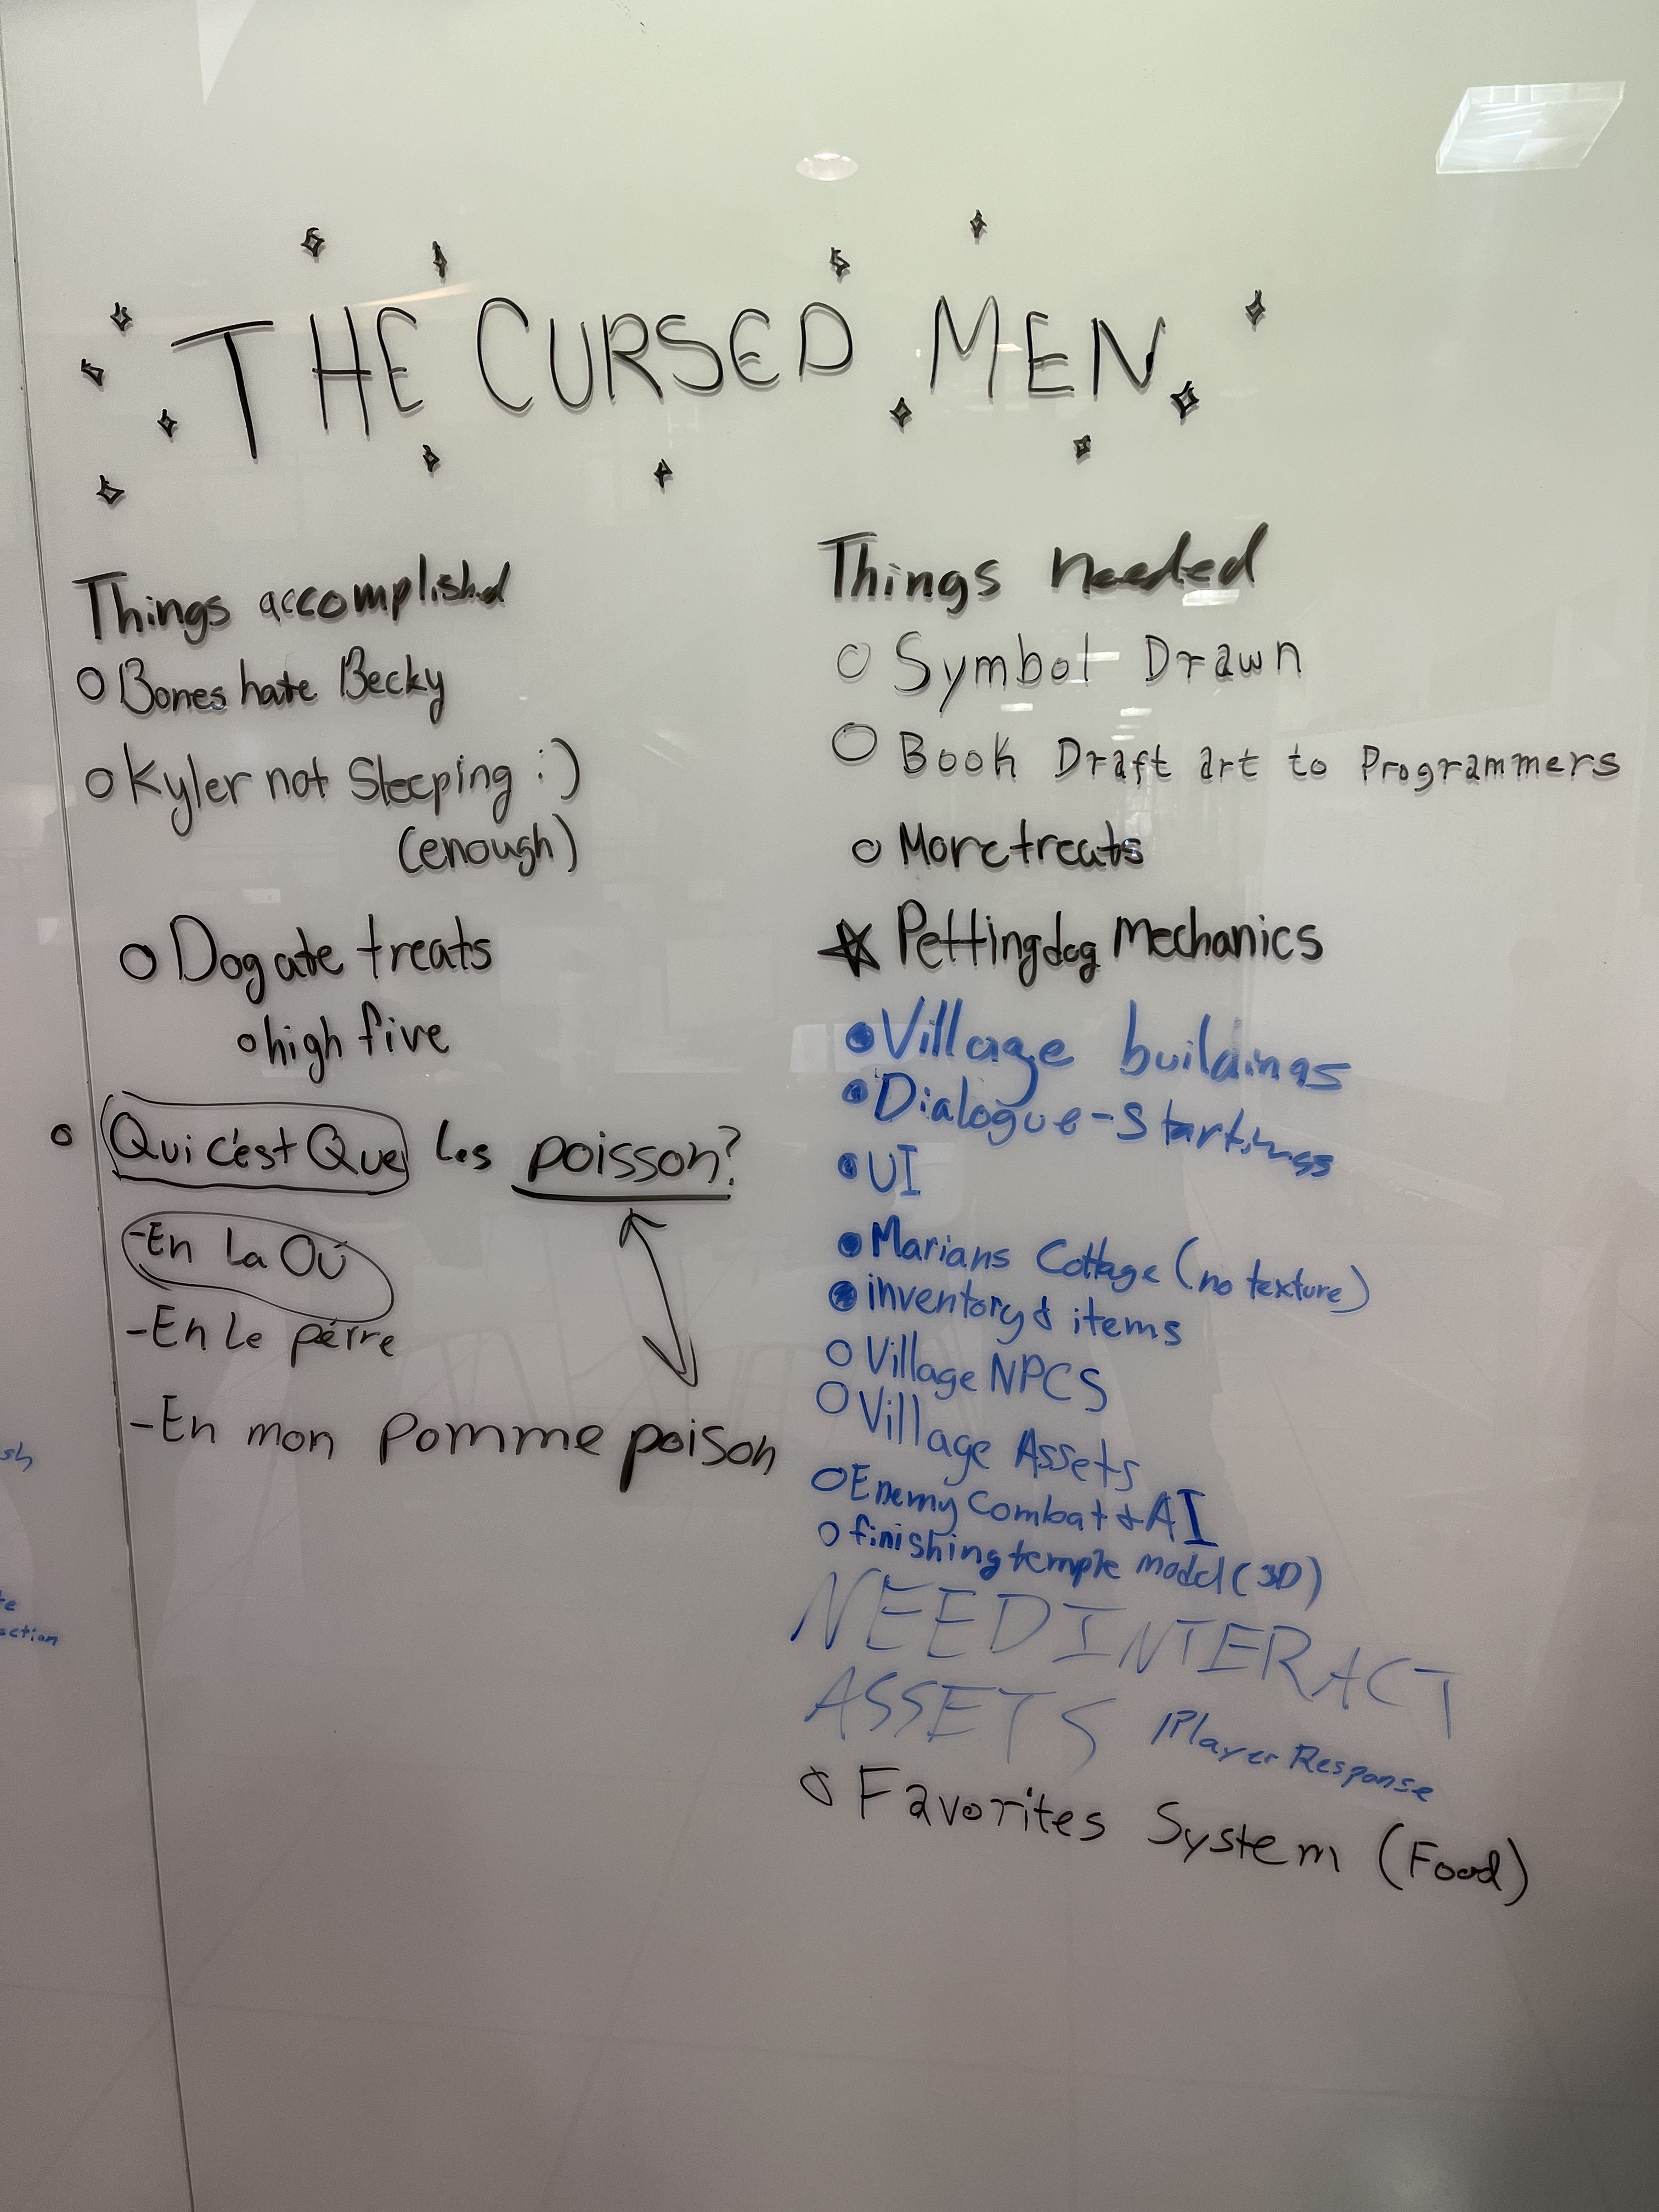 THE CURSED MEN
Things accomplished
Bones hate Becky
Kyler not Sleeping :)
(enough)
Dog ate treats
high five
Qui c'est Que les poisson?
-En La Où
-En Le pérre
-En mon pomme poison
Things needed
Symbol Drawn
Book Draft art to Programmers
More treats
Petting dog Mechanics
Village buildings
Dialogue-Startings
UI
Marians Cottage (no texture)
inventory & items
Village NPCS
Village Assets
Enemy Combat & AI
finishing temple model (3D)
NEED INTERACT
ASSETS Player Response
Favorites System (Food)
sh
te
action